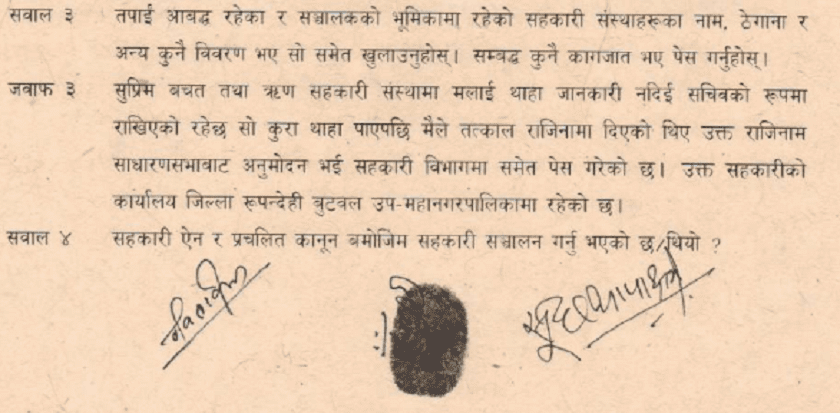 सवाल ३ तपाईं आबद्ध रहेका र सञ्चालकको भूमिकामा रहेको सहकारी संस्थाहरूका नाम, ठेगाना र
अन्य कुनै विवरण भए सो समेत खुलाउनुहोस्। सम्बद्ध कुनै कागजात भए पेस गर्नुहोस्।
जवाफ ३ सुप्रिम बचत तथा ऋण सहकारी संस्थामा मलाई थाहा जानकारी नदिई सचिवको रूपमा
राखिएको रहेछ सो कुरा थाहा पाएपछि मैले तत्काल राजिनामा दिएको थिए उक्त राजिनाम
साधारणसभावाट अनुमोदन भई सहकारी विभागमा समेत पेस गरेको छ। उक्त सहकारीको
कार्यालय जिल्ला रूपन्देही वुटवल उप-महानगरपालिकामा रहेको छ।
सवाल ४ सहकारी ऐन र प्रचलित कानून बमोजिम सहकारी सञ्चालन गर्नु भएको छ/थियो ?